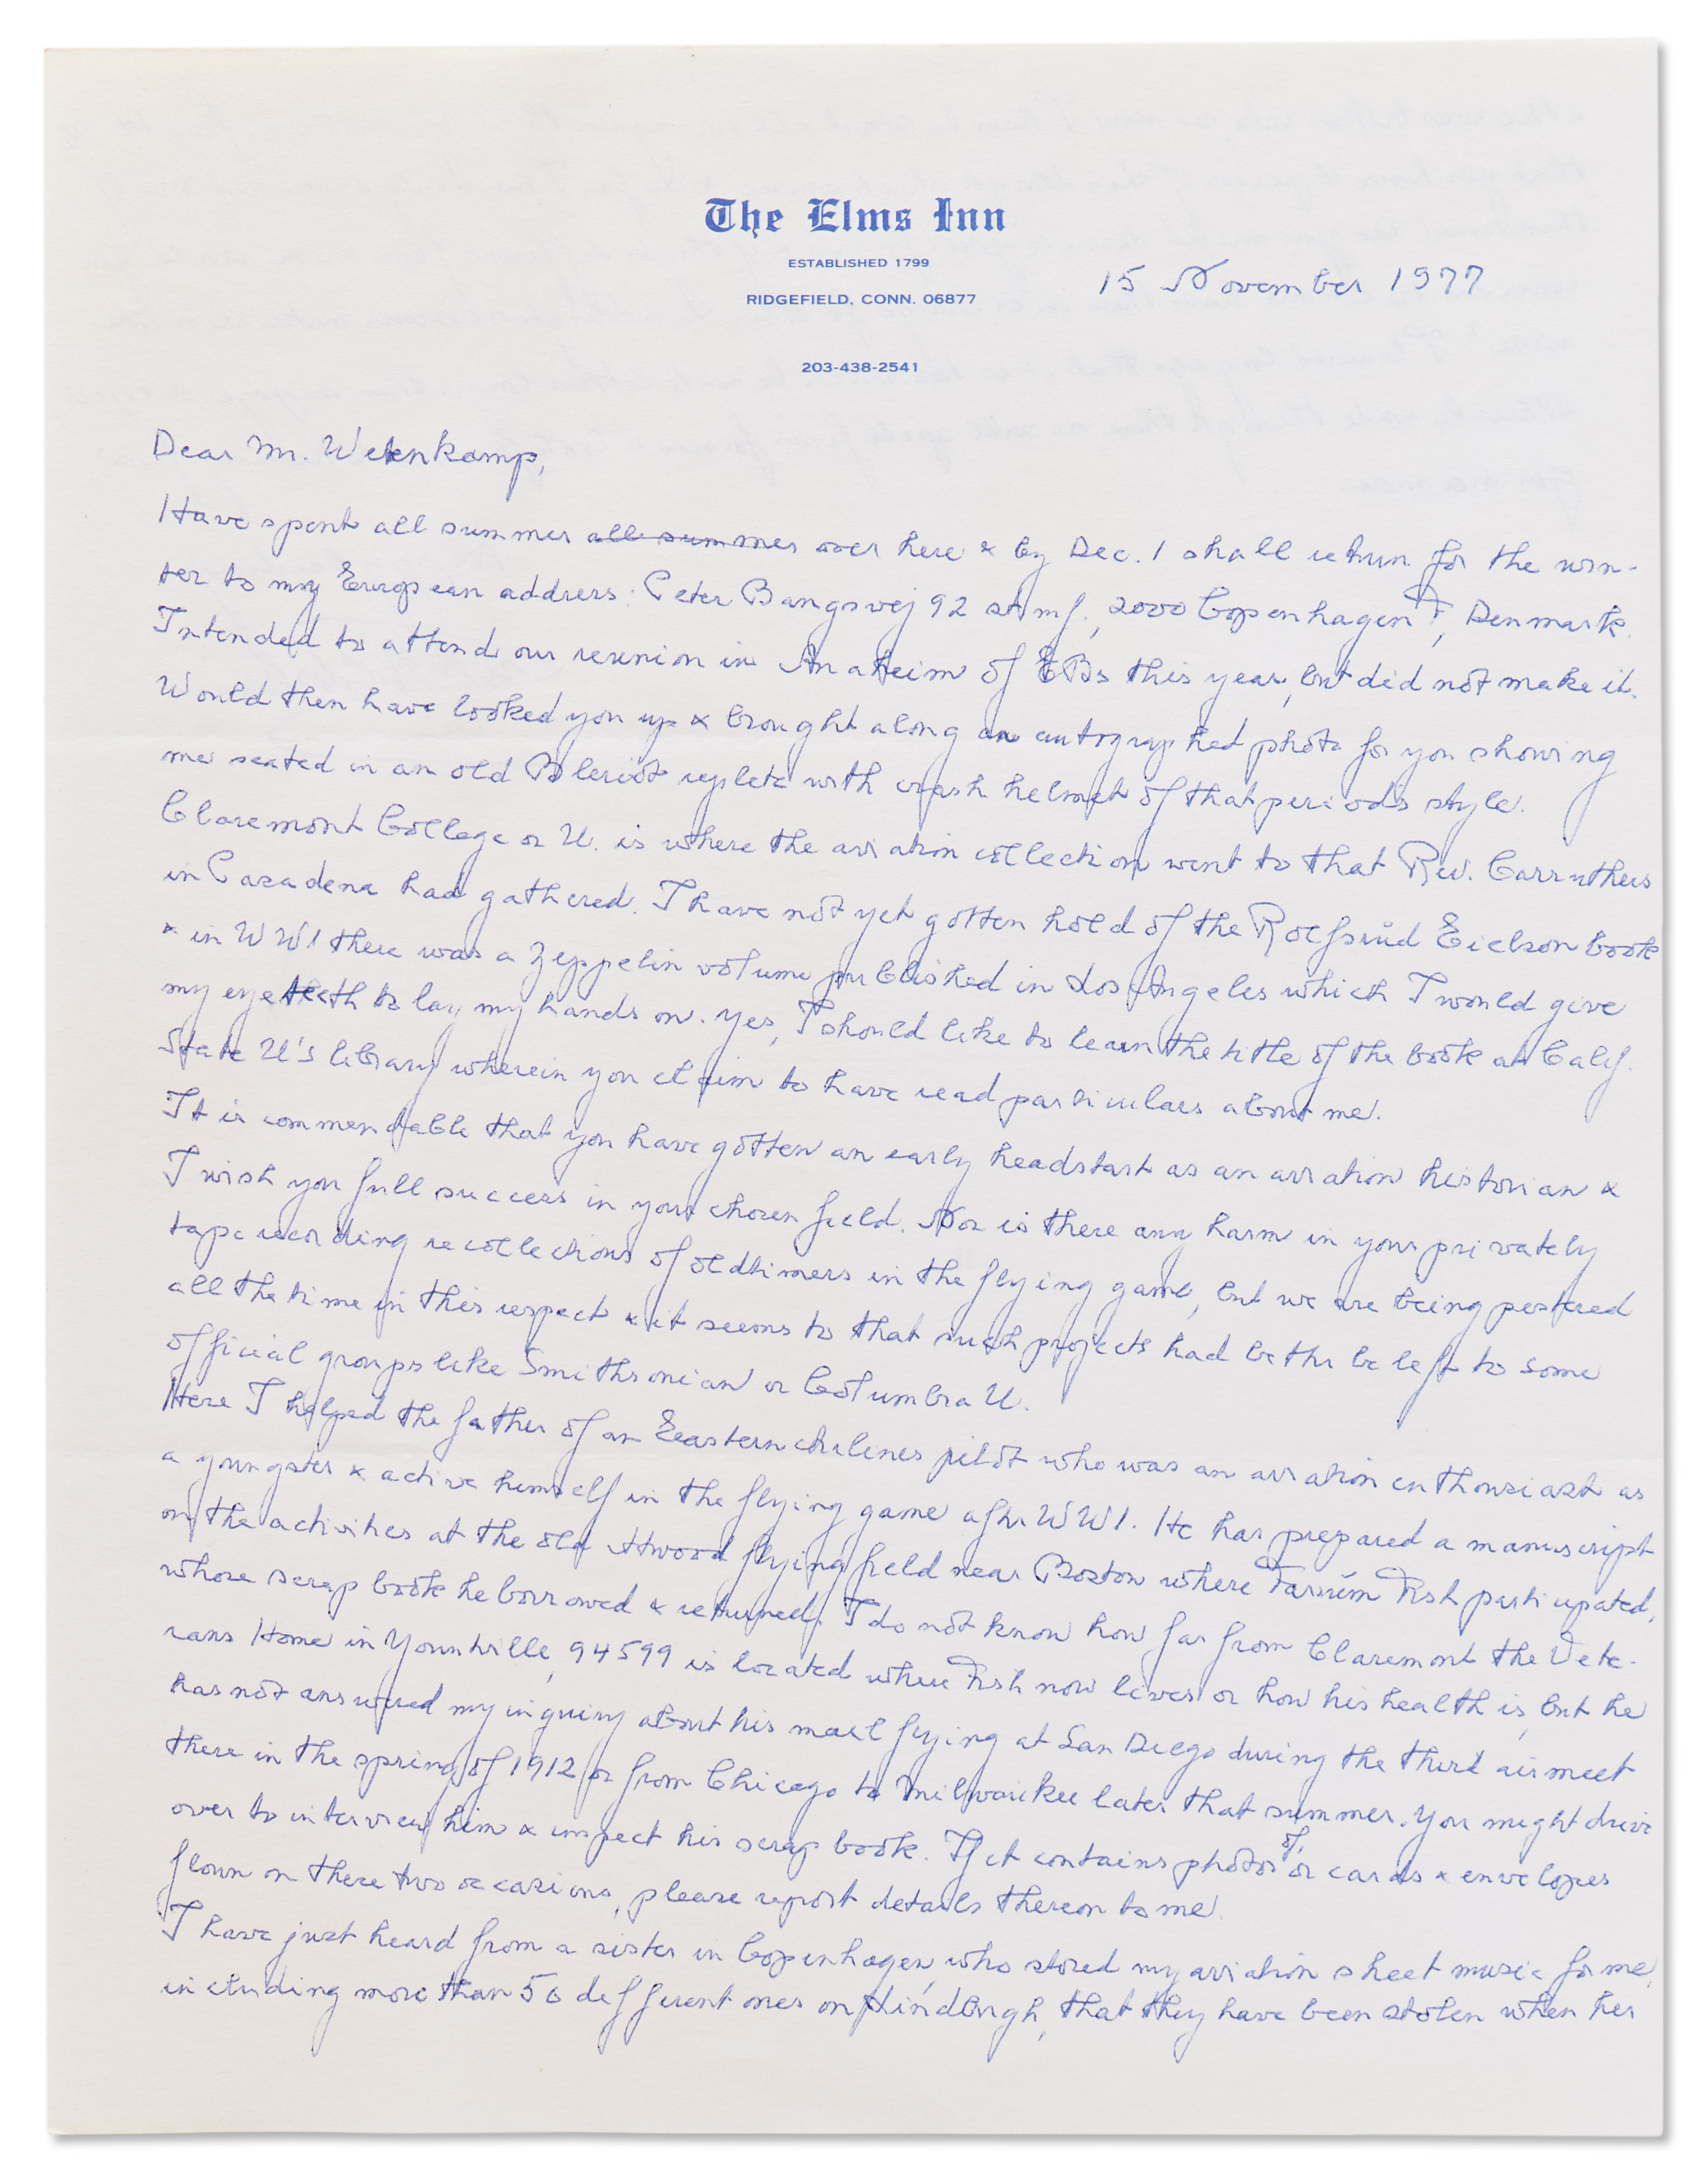 The Elms Inn
ESTABLISHED 1799
RIDGEFIELD, CONN. 06877
15 November 1977
203-438-2541
Dear Mr. Wetenkamp,
Have spent all summer all summer over here & by Dec. 1 shall return for the win-
ter to my European address: Peter Bangsvej 92 st mf., 2000 Copenhagen F, Denmark.
Intended to attend our reunion in Anaheim of EBs this year, but did not make it.
Would then have looked you up & brought along an autographed photo for you showing
me seated in an old Bleriot replete with crash helmet of that period's style.
Claremont College or U. is where the aviation collection went to that Rev. Carruthers
in Pasadena had gathered. I have not yet gotten hold of the Rolfsrud Eielson book
& in WW1 there was a Zeppelin volume published in Los Angeles which I would give
my eye teeth to lay my hands on. Yes, I should like to learn the title of the book at Calif.
State U's library wherein you claim to have read particulars about me.
It is commendable that you have gotten an early headstart as an aviation historian &
I wish you full success in your chosen field. Nor is there any harm in your privately
tape recording recollections of oldtimers in the flying game, but we are being pestered
all the time in this respect & it seems to that such projects had bettr be left to some
official groups like Smithsonian or Columbia U.
Here I helped the father of an Eastern Airlines pilot who was an aviation enthousiast as
a youngster & active himself in the flying game aftr WW1. He has prepared a manuscript
on the activities at the old Atwood flying field near Boston where Farnum Fish participated,
whose scrap book he borrowed & returned. I do not know how far from Claremont the Vete-
rans Home in Yountville, 94599 is located where Fish now lives or how his health is, but he
has not answered my inquiry about his mail flying at San Diego during the third air meet
there in the spring of 1912 or from Chicago to Milwaukee later that summer. You might drive
over to interview him & inspect his scrap book. If it contains photos of or cards & envelopes
flown on these two occasions, please report details thereon to me.
I have just heard from a sister in Copenhagen, who stored my aviation sheet music for me,
including more than 50 different ones on Lindbergh, that they have been stolen when her